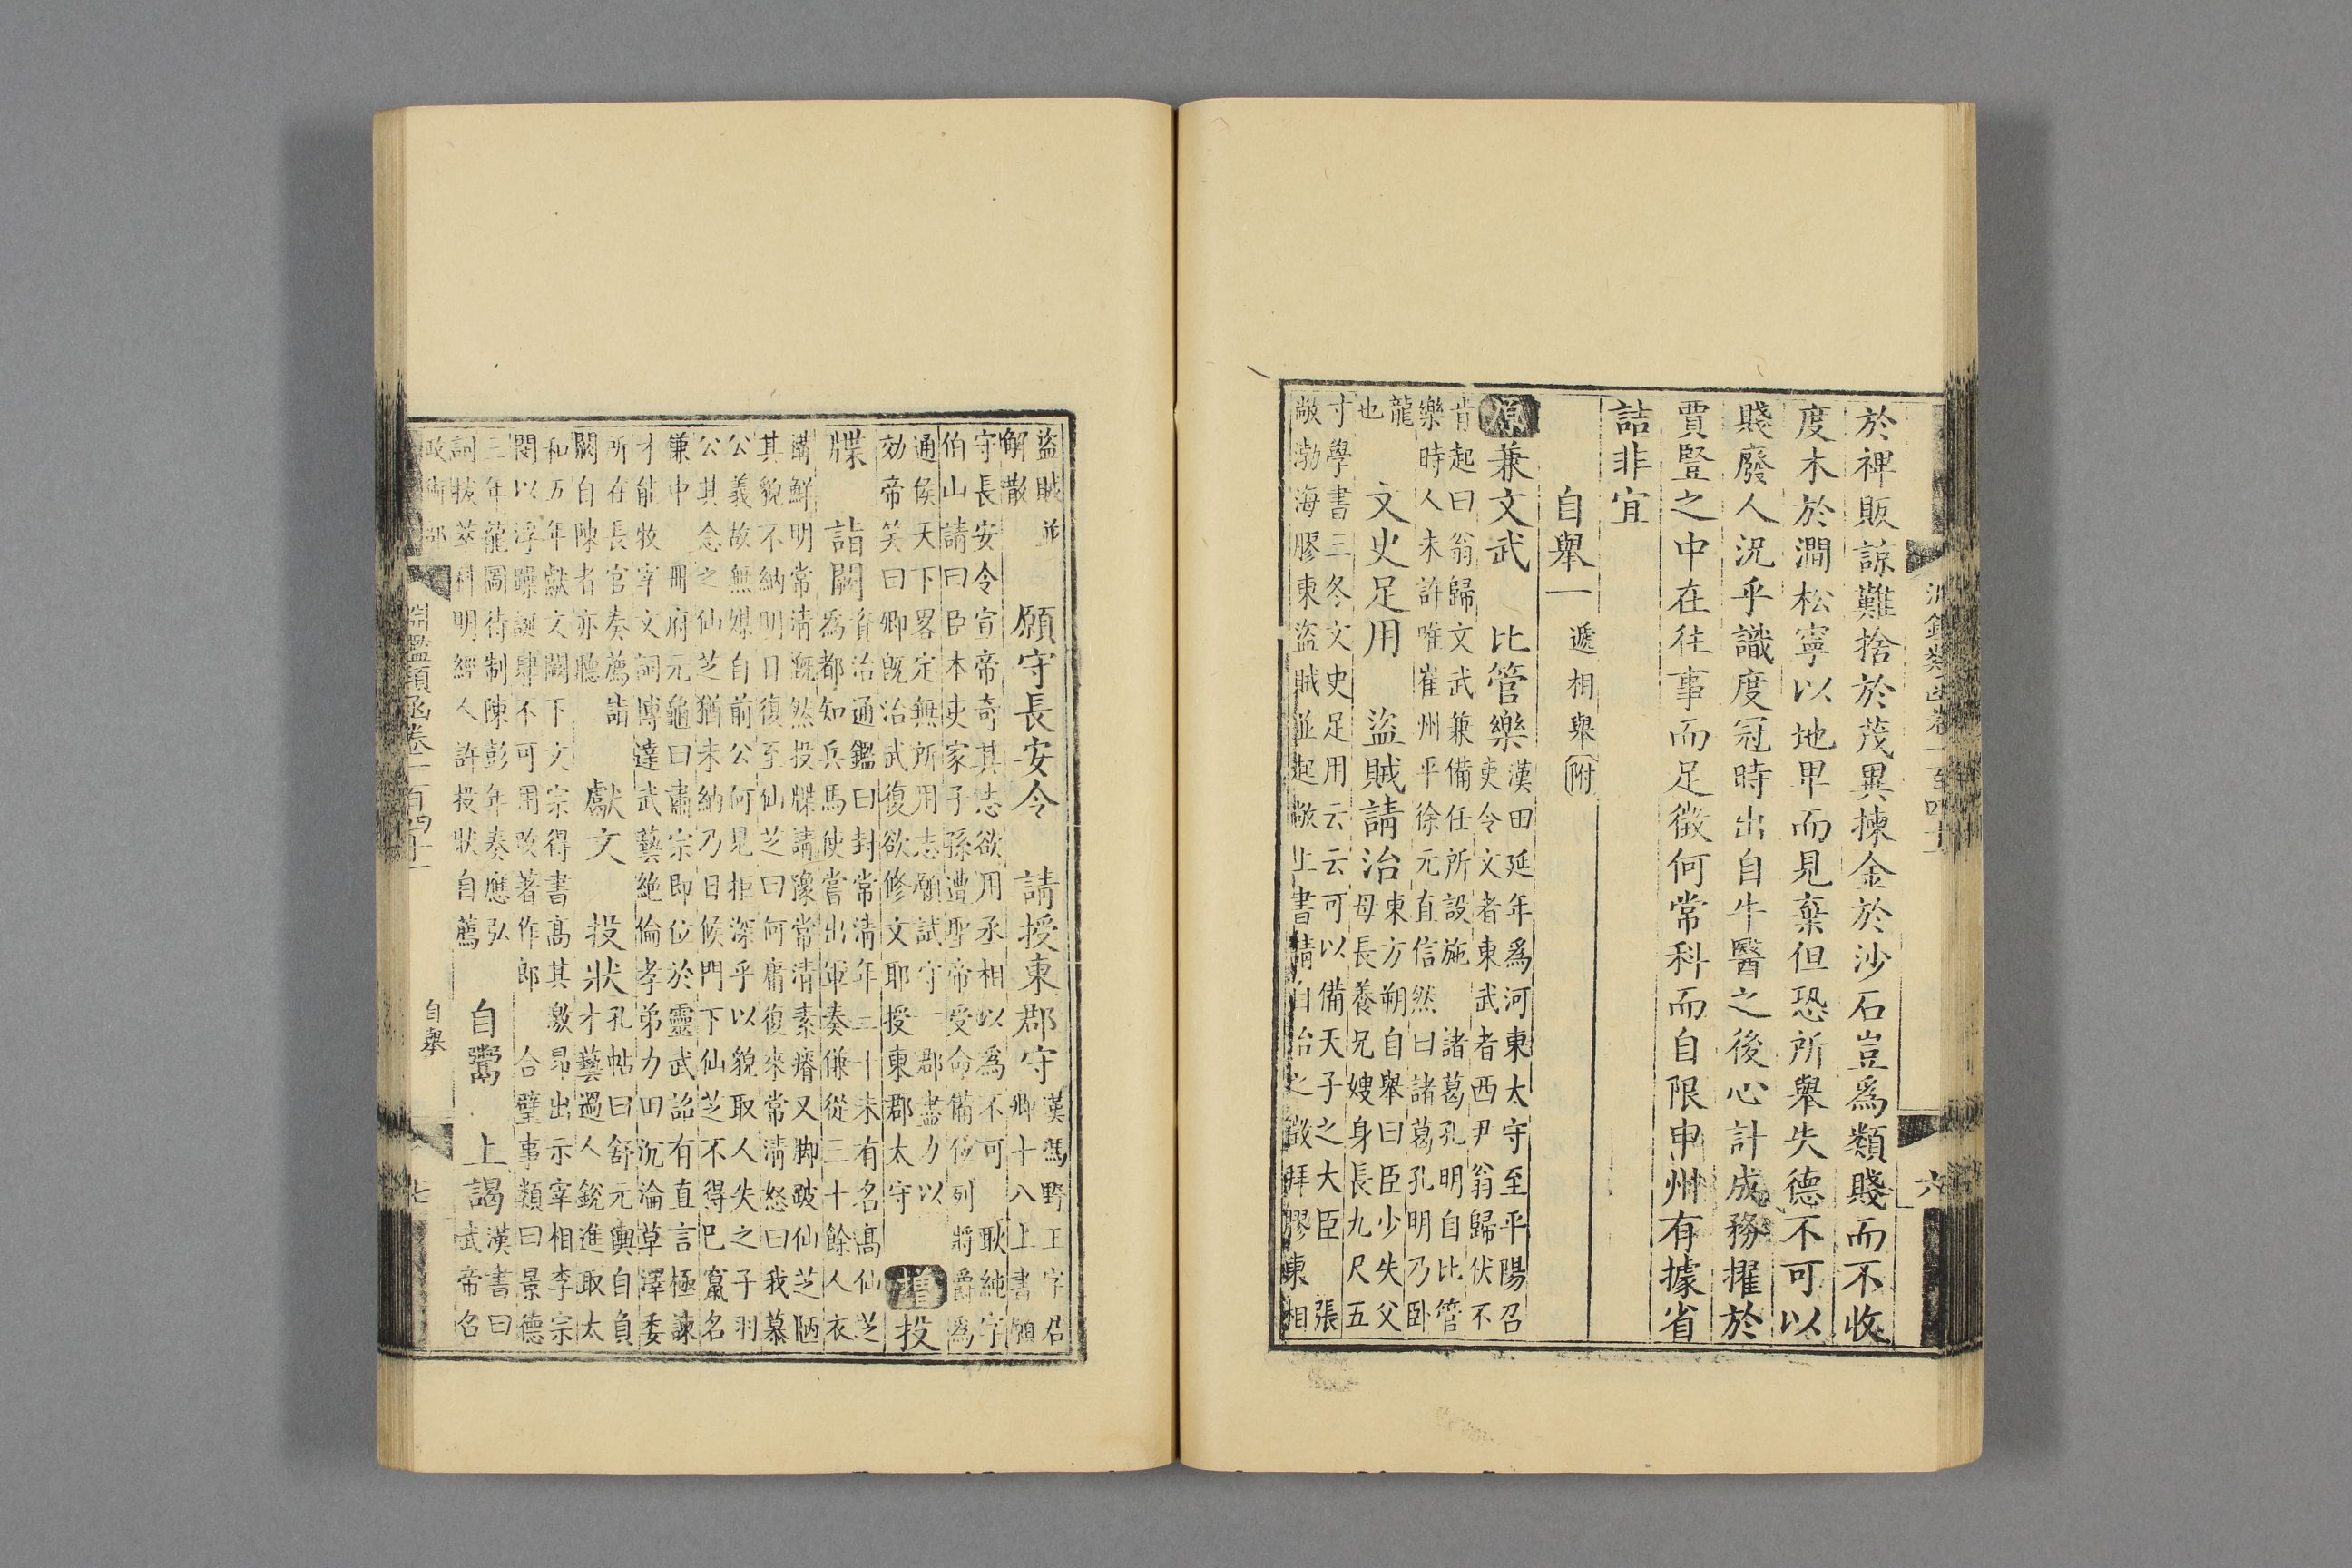 淵鑑類函卷一百四十一 六
於裨販諒難捨於茂異揀金於沙石豈爲類賤而不收
度木於澗松寧以地卑而見棄但恐所舉失德不可以
賤廢人況乎識度冠時出自牛醫之後心計成務擢於
賈豎之中在往事而足徵何常科而自限申州有據省
詰非宜
自舉一 遞相舉附
原兼文武 比管樂 漢田延年爲河東太守至平陽召
吏令文者東武者西尹翁歸伏不
肯起曰翁歸文武兼備任所設施 諸葛孔明自比管
樂時人未許唯崔州平徐元直信然曰諸葛孔明乃卧
龍
也
文史足用 盜賊請治 東方朔自舉曰臣少失父
母長養兄嫂身長九尺五
寸學書三冬文史足用云云可以備天子之大臣 張
敞渤海膠東盜賊並起敞上書請自治之徵拜膠東相
盜賊並
解散
願守長安令 請授東郡守 漢馮野王字君
卿十八上書願
守長安令宣帝奇其志欲用丞相以爲不可 耿純字
伯山請曰臣本吏家子孫遭聖帝受命備位列將爵爲
通侯天下畧定無所用志願試守一郡盡力以
効帝笑曰卿旣治武復欲修文耶授東郡太守
增投
牒 詣闕 資治通鑑曰封常清年三十未有名高仙芝
爲都知兵馬使嘗出軍奏傔從三十餘人衣
褠鮮明常清慨然投牒請豫常清素瘠又脚跛仙芝陋
其貌不納明日復至仙芝曰何庸復來常清怒曰我慕
公義故無媒自前公何見拒深乎以貌取人失之子羽
公其念之仙芝猶未納乃日候門下仙芝不得已竄名
傔中 冊府元龜曰肅宗即位於靈武詔有直言極諫
才能牧宰文詞博達武藝絶倫孝弟力田沉淪草澤委
所在長官奏薦詣
闕自陳者亦聽
獻文 投狀 孔帖曰舒元輿自負
才藝過人銳進取太
和五年獻文闕下文宗得書高其激昂出示宰相李宗
閔以浮躁誕肆不可用改著作郎 合璧事類曰景德
三年龍圖待制陳彭年奏應弘
詞拔萃科明經人許投狀自薦
自鬻 上謁 漢書曰
武帝名
政術部 淵鑑類函卷一百四十一 自舉 七